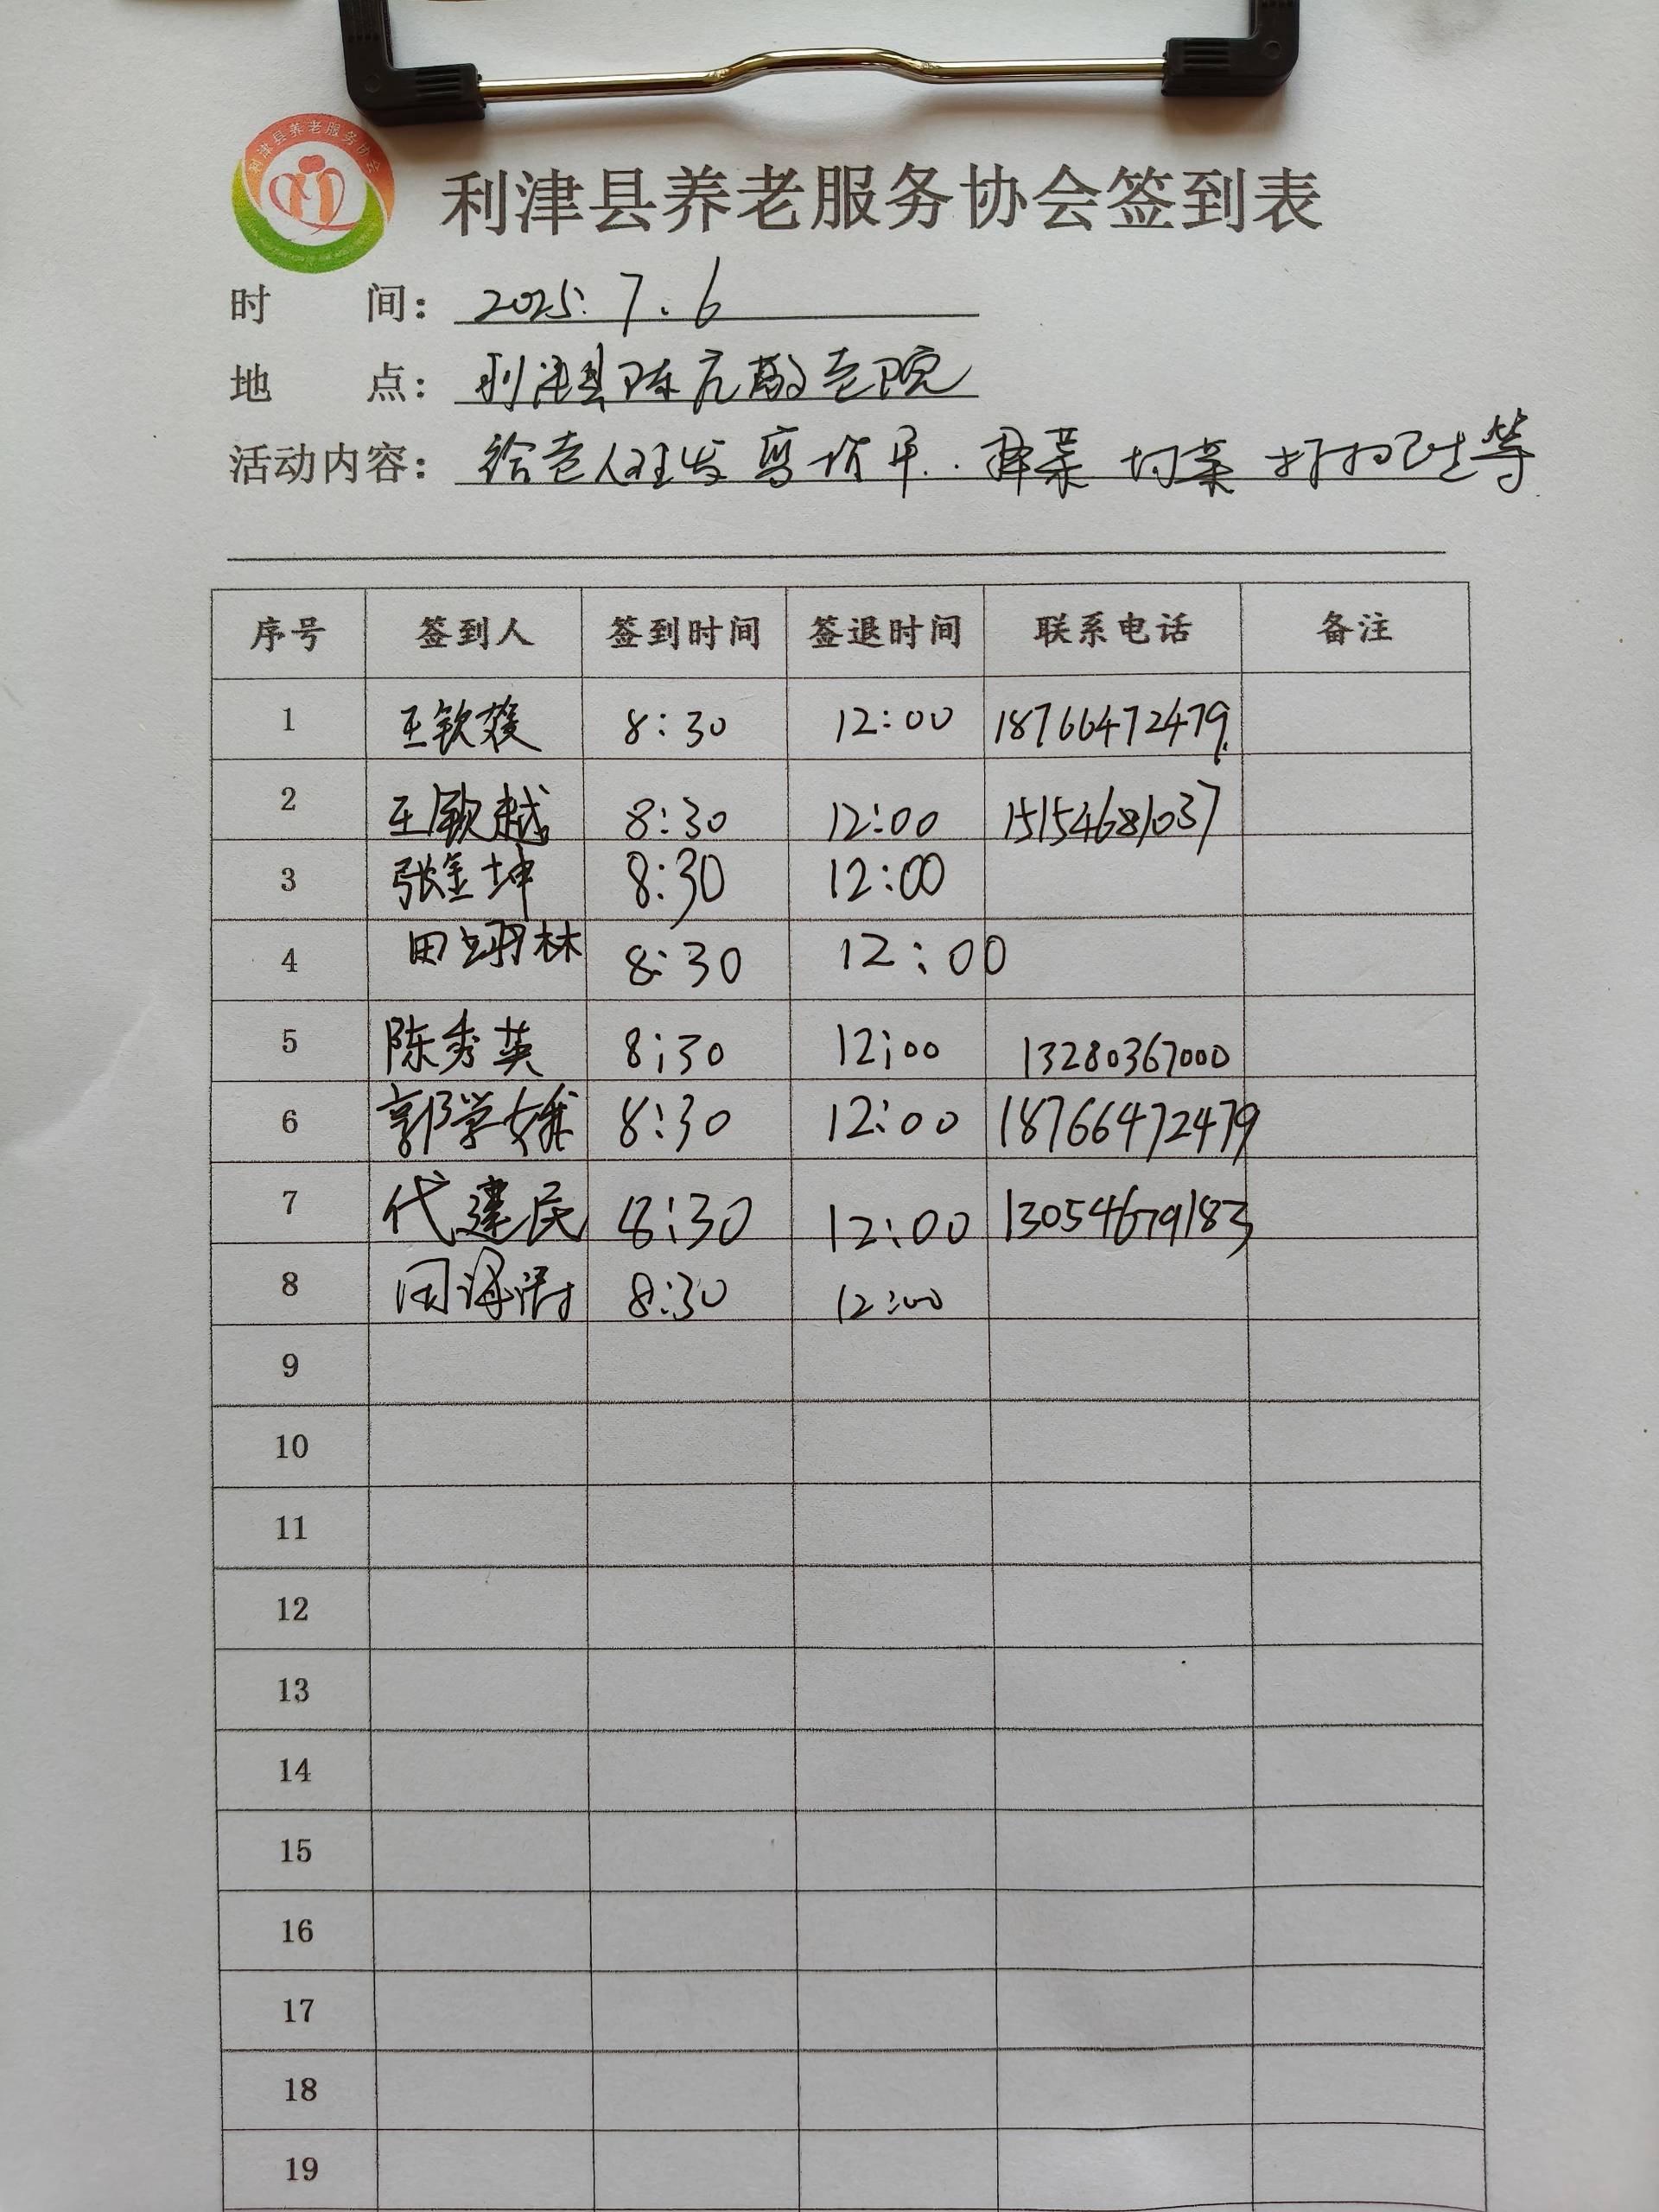 利津县养老服务协会
利津县养老服务协会签到表
时 间： 2025.7.6
地 点： 利津县陈庄敬老院
活动内容： 给老人理发 剪指甲.. 择菜 切菜 打扫卫生等
序号 签到人 签到时间 签退时间 联系电话 备注
1 王钦 8:30 12:00 18766472479
2 王钦越 8:30 12:00 15154681037
3 张金坤 8:30 12:00
4 田翊林 8:30 12:00
5 陈秀英 8:30 12:00 13280367000
6 郭学娥 8:30 12:00 18766472479
7 代建民 8:30 12:00 13054679183
8 8:30 12:00
9
10
11
12
13
14
15
16
17
18
19